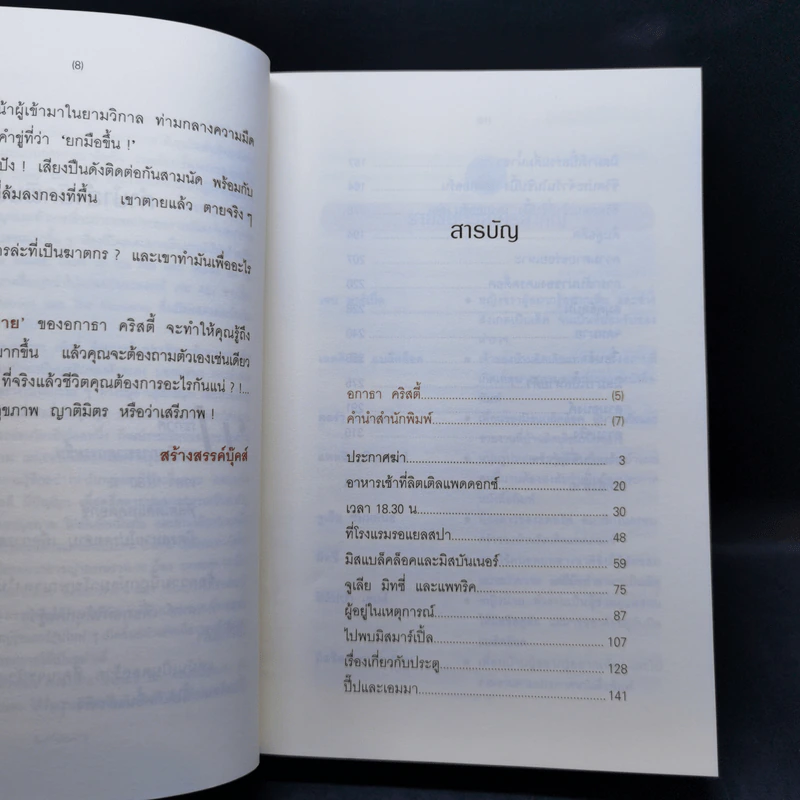 (8)
ผู้เข้ามาในยามวิกาล ท่ามกลางความมืด
คำขู่ที่ว่า ‘ยกมือขึ้น !’
ปัง ! เสียงปืนดังติดต่อกันสามนัด พร้อมกับ
ล้มลงกองที่พื้น เขาตายแล้ว ตายจริง ๆ
ที่เป็นฆาตกร ? และเขาทำมันเพื่ออะไร
ของอกาธา คริสตี้ จะทำให้คุณรู้ถึง
มากขึ้น แล้วคุณจะต้องถามตัวเองเช่นเดียว
ที่จริงแล้วชีวิตคุณต้องการอะไรกันแน่ ? !...
ญาติมิตร หรือว่าเสรีภาพ !
สร้างสรรค์บุ๊คส์
สารบัญ
อกาธา คริสตี้ (5)
คำนำสำนักพิมพ์ (7)
ประกาศฆ่า 3
อาหารเช้าที่ลิตเติลแพดดอกซ์ 20
เวลา 18.30 น. 30
ที่โรงแรมรอแยลสปา 48
มิสแบล็คล็อคและมิสบันเนอร์ 59
จูเลีย มิทซี่ และแพทริค 75
ผู้อยู่ในเหตุการณ์ 87
ไปพบมิสมาร์เปิ้ล 107
เรื่องเกี่ยวกับประตู 128
ปี๊ปและเอมมา 141